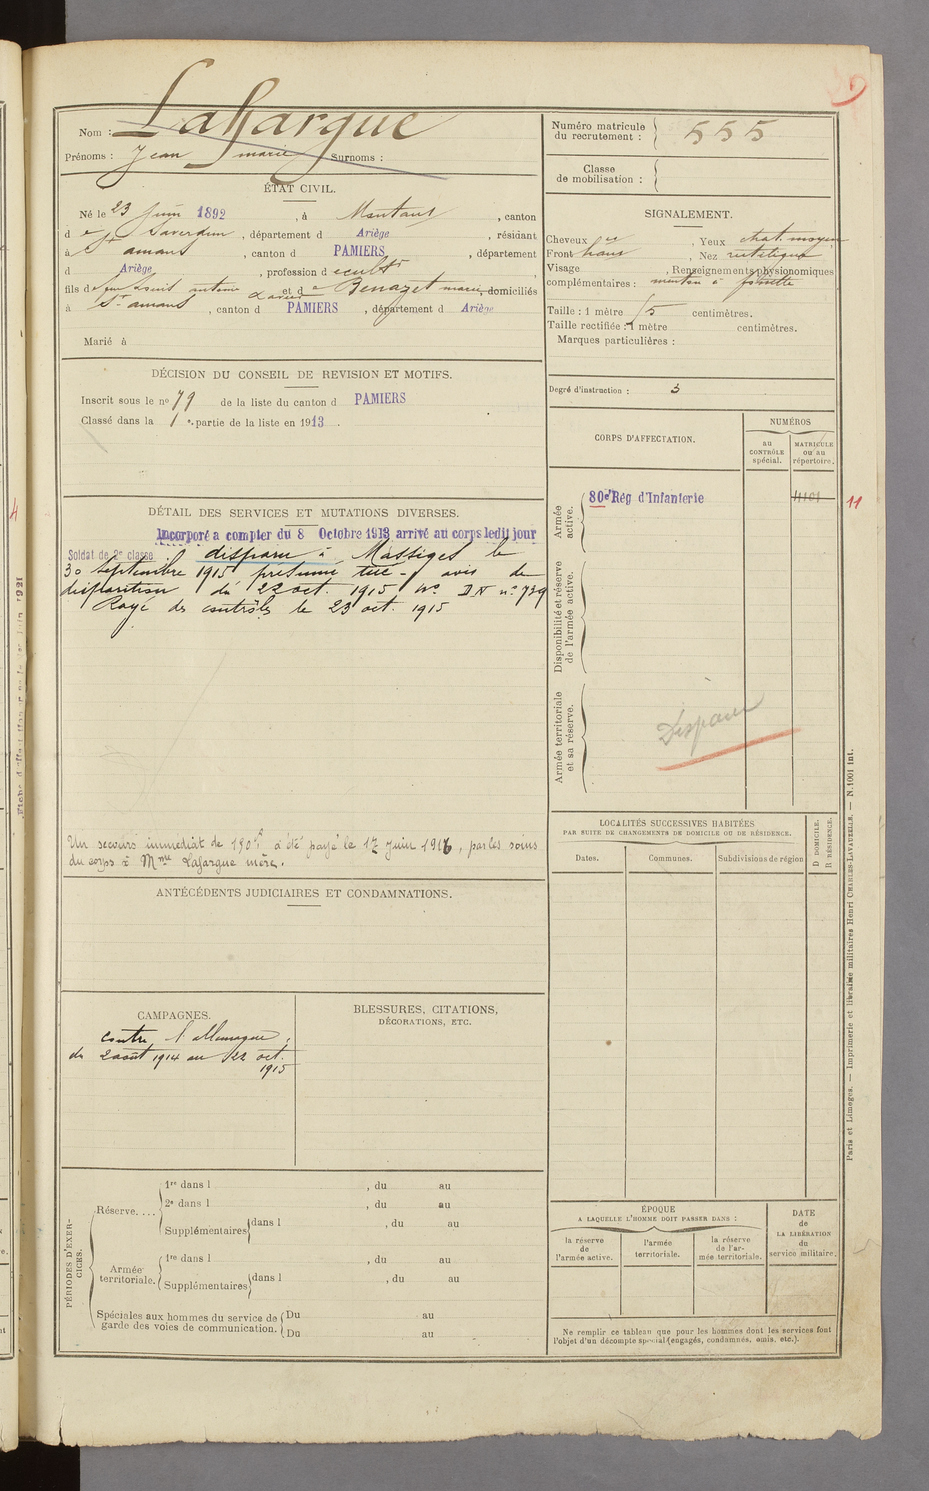 Nom : Lafargue
Prénoms : Jean marie Surnoms :
ÉTAT CIVIL.
Né le 23 juin 1892, à Montaut, canton
de Saverdun, département d Ariège, résidant
à St amans, canton d PAMIERS, département
d Ariège, profession d cultr
fils de feu Louis antoine et de Benazet marie, domiciliés
à St amans, canton d PAMIERS, département d Ariège
Marié à
DÉCISION DU CONSEIL DE REVISION ET MOTIFS.
Inscrit sous le no 79 de la liste du canton d PAMIERS
Classé dans la 1e partie de la liste en 1913.
DÉTAIL DES SERVICES ET MUTATIONS DIVERSES.
Incorporé a compter du 8 Octobre 1913 arrivé au corps ledit jour
Soldat de 2e classe. disparu à Massiges le
30 septembre 1915 présumé tué - avis de
disparition du 22 oct. 1915 No DN no 739
Rayé des contrôles le 23 oct. 1915
Un secours immédiat de 150f a été payé le 17 Juin 1916, par les soins
du corps à Mme Lafargue mère.
ANTÉCÉDENTS JUDICIAIRES ET CONDAMNATIONS.
CAMPAGNES.
contre l'allemagne,
du 2 août 1914 au 22 oct.
1915
BLESSURES, CITATIONS,
DÉCORATIONS, ETC.
PÉRIODES D'EXERCICES.
Réserve....
1re dans l , du au
2e dans l , du au
Supplémentaires dans l , du au
Armée territoriale.
1re dans l , du au
Supplémentaires dans l , du au
Spéciales aux hommes du service de garde des voies de communication.
Du au
Du au
Numéro matricule
du recrutement : 555
Classe
de mobilisation :
SIGNALEMENT.
Cheveux , Yeux chat. moyen
Front haut , Nez rectiligne
Visage , Renseignements physionomiques
complémentaires : menton à fossette
Taille : 1 mètre 75 centimètres.
Taille rectifiée : 1 mètre centimètres.
Marques particulières :
Degré d'instruction : 3
CORPS D'AFFECTATION.
NUMÉROS
au
CONTRÔLE
spécial.
MATRICULE
ou au
répertoire.
Armée
active.
80e Rég d'Infanterie
11
Disponibilité et réserve
de l'armée active.
Armée territoriale
et sa réserve.
Disparu
LOCALITÉS SUCCESSIVES HABITÉES
PAR SUITE DE CHANGEMENTS DE DOMICILE OU DE RÉSIDENCE.
Dates.
Communes.
Subdivisions de région
D DOMICILE.
R RÉSIDENCE.
ÉPOQUE
A LAQUELLE L'HOMME DOIT PASSER DANS :
la réserve
de
l'armée active.
l'armée
territoriale.
la réserve
de l'ar-
mée territoriale.
DATE
de
LA LIBÉRATION
du
service militaire.
Ne remplir ce tableau que pour les hommes dont les services font
l'objet d'un décompte spécial (engagés, condamnés, omis, etc.).
Paris et Limoges. — Imprimerie et librairie militaires Henri CHARLES-LAVAUZELLE. — N. 1001 int.